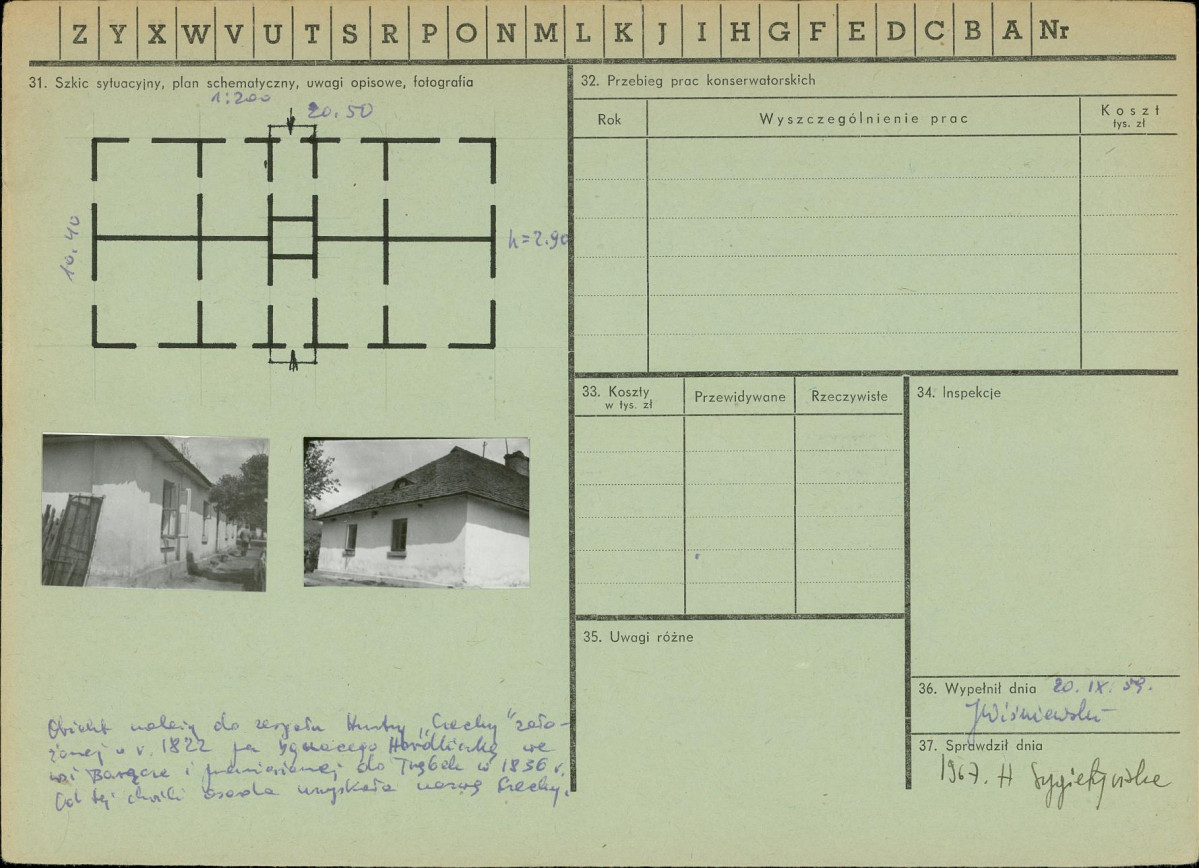 Z Y X W V U T S R P O N M L K J I H G F E D C B A Nr
31. Szkic sytuacyjny, plan schematyczny, uwagi opisowe, fotografia
1:200
20.50
10.40
h=2.90
Obiekt należy do zespołu Huty "Czechy" zało-
żonej w r. 1822 Ignacego Hordliczkę we
wsi i przeniesionej do Trąbek w 1836 r.
Od tej chwili osada uzyskała nazwę Czechy.
32. Przebieg prac konserwatorskich
Rok
Wyszczególnienie prac
Koszt
tys. zł
33. Koszty
w tys. zł
Przewidywane
Rzeczywiste
34. Inspekcje
35. Uwagi różne
36. Wypełnił dnia 20. IX. 59.
JWiśniewski
37. Sprawdził dnia
1967. H Sygietyńska